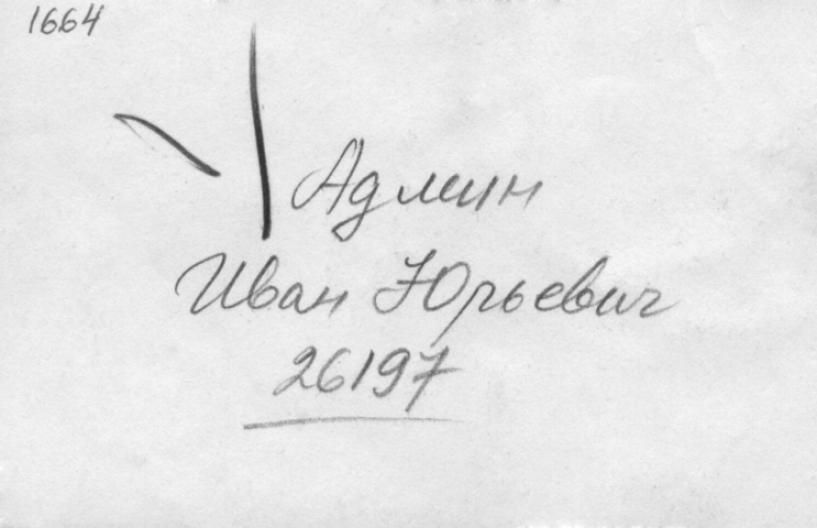 1664
Админ
Иван Юрьевич
26197